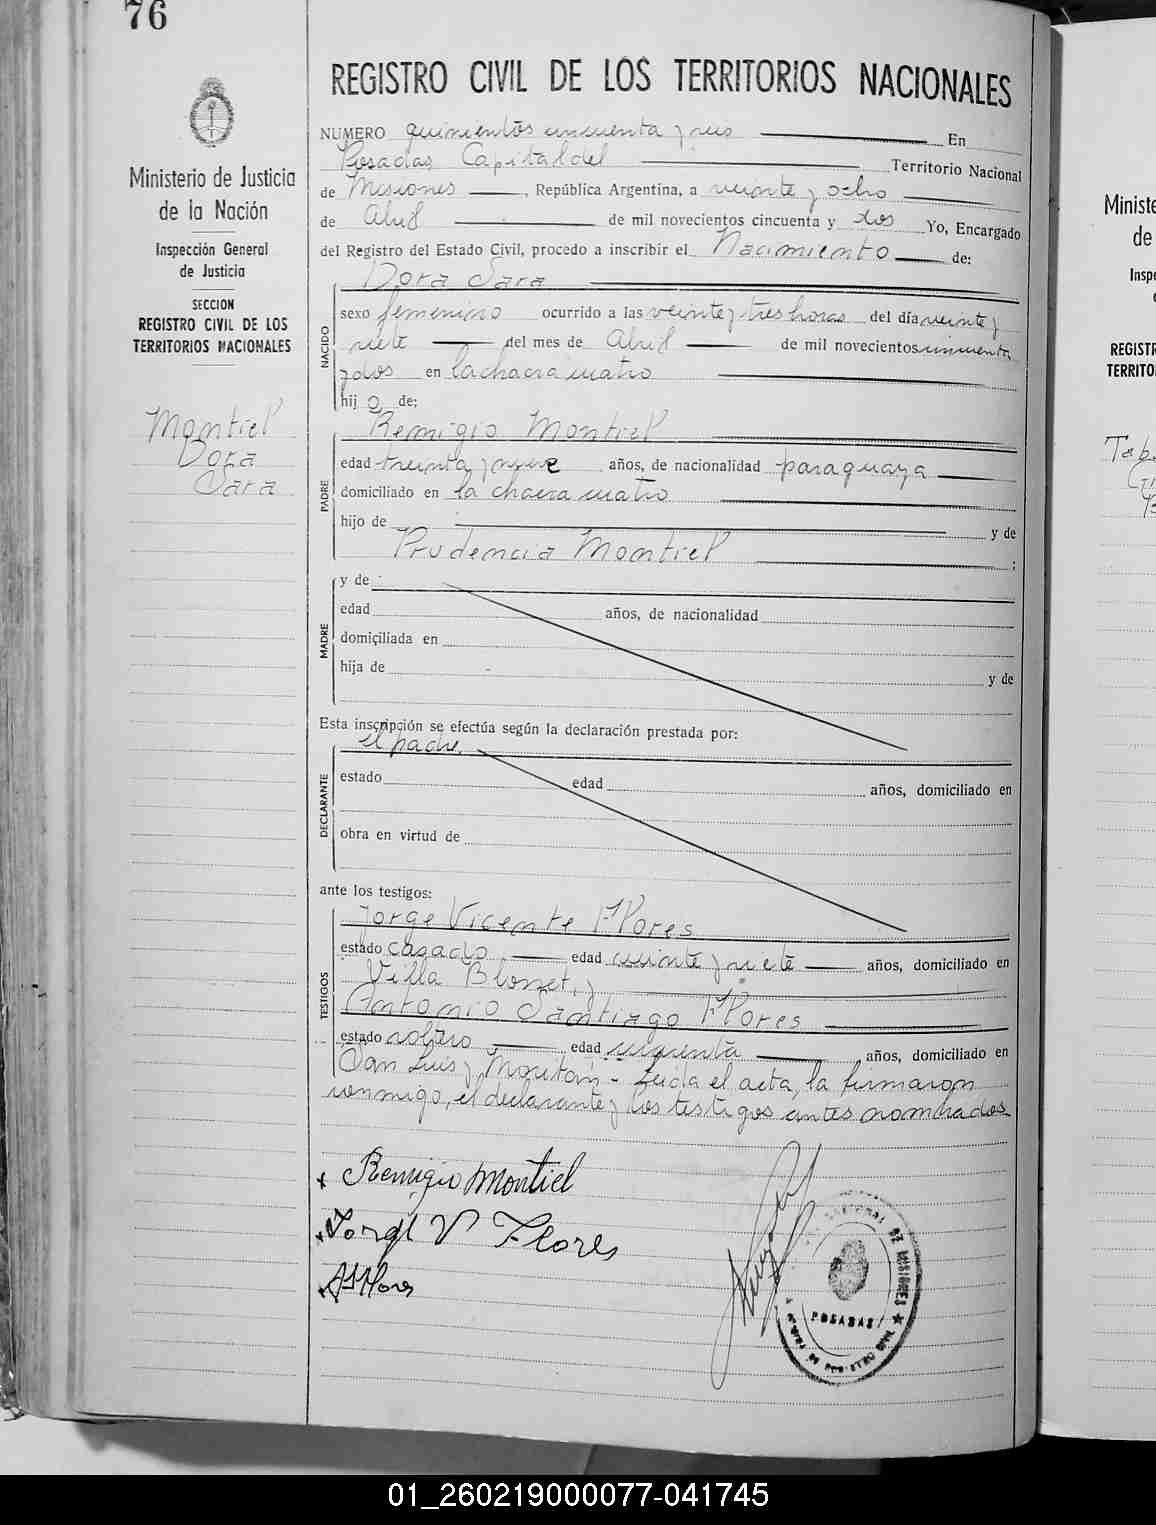 76
REGISTRO CIVIL DE LOS TERRITORIOS NACIONALES
Ministerio de Justicia
de la Nación
Inspección General
de Justicia
SECCION
REGISTRO CIVIL DE LOS
TERRITORIOS NACIONALES
Montiel
Dora
Sara
NUMERO quinientos cincuenta y seis En
Posadas Capital del Territorio Nacional
de Misiones, República Argentina, a veinte y ocho
de Abril de mil novecientos cincuenta y dos Yo, Encargado
del Registro del Estado Civil, procedo a inscribir el Nacimiento de:
Dora Sara
NACIDO
sexo femenino ocurrido a las veinte y tres horas del día veinte y
siete del mes de Abril de mil novecientos cincuenta
y dos en la chacra cuatro
hij a de:
Remigio Montiel
PADRE
edad treinta y nueve años, de nacionalidad paraguaya
domiciliado en la chacra cuatro
hijo de y de
Prudencia Montiel ;
MADRE
y de
edad años, de nacionalidad
domiciliada en
hija de y de
Esta inscripción se efectúa según la declaración prestada por:
el padre.
DECLARANTE
estado edad años, domiciliado en
obra en virtud de
ante los testigos:
TESTIGOS
Jorge Vicente Flores
estado casado edad veinte y siete años, domiciliado en
Villa Blosset, y
Antonio Santiago Flores
estado soltero edad cincuenta años, domiciliado en
San Luis y - Leida el acta, la firmaron
conmigo, el declarante y los testigos antes nombrados
x Remigio Montiel
x Jorge V Flores
x A S Flores
DE MISIONES
POSADAS
Ministe
de
Inspe
REGISTR
TERRITO
01_260219000077-041745